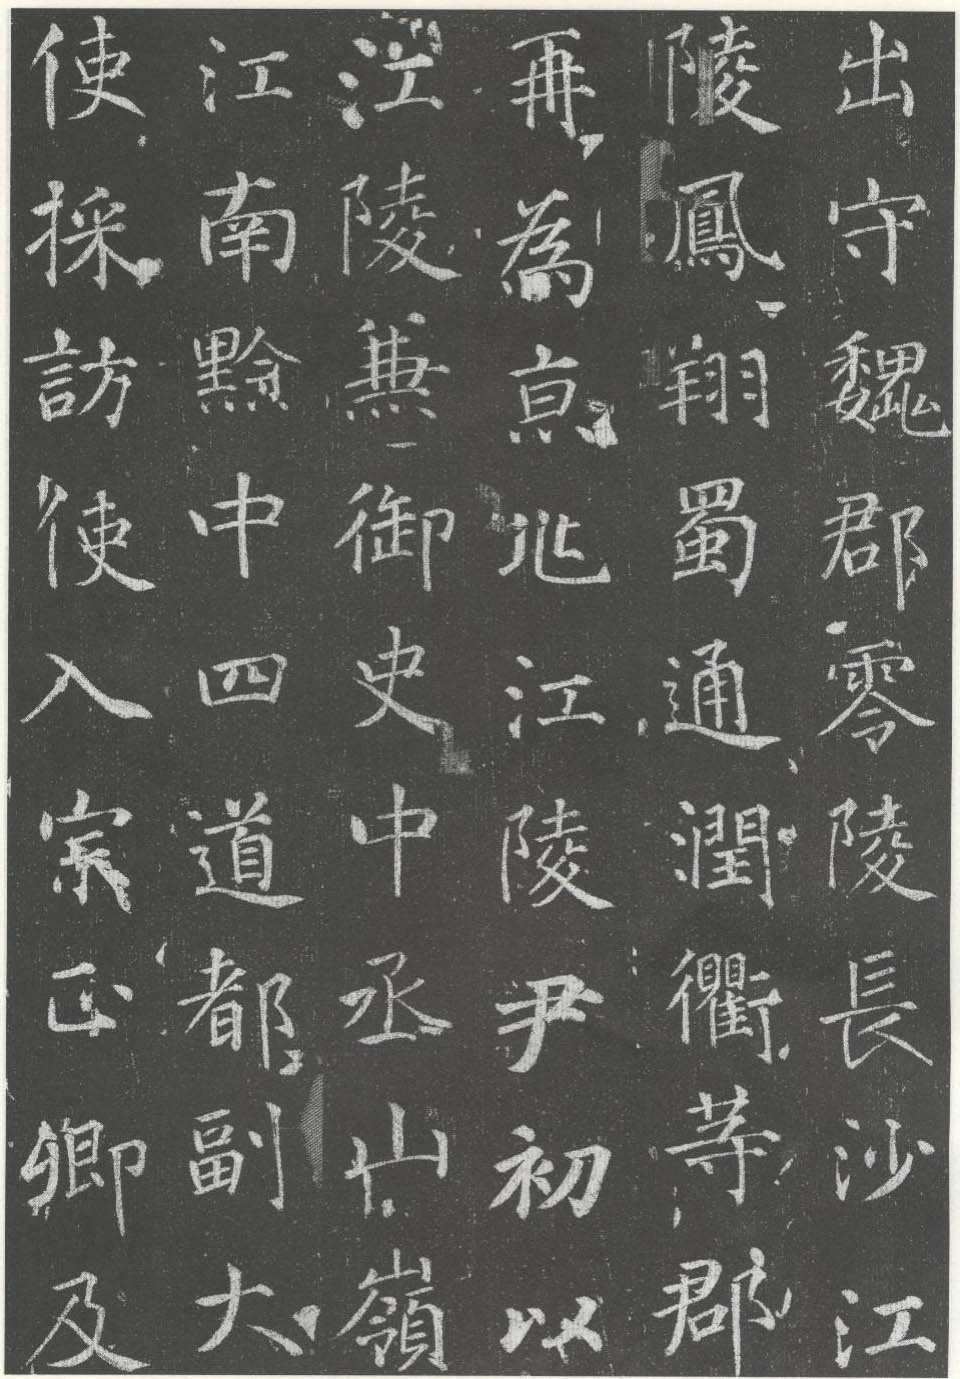 出守魏郡零陵長沙江
陵鳳翔蜀通潤衢䓁郡
再為京兆江陵尹初以
江陵兼御史中丞山嶺
江南黔中四道都副大
使採訪使入宗正卿及